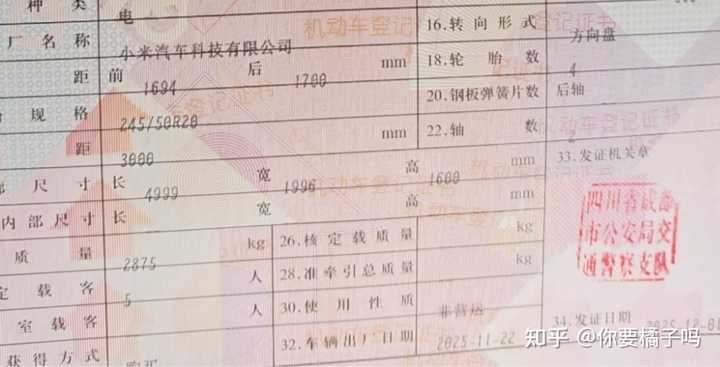 种 类 电 16.转 向 形 式 方向盘
厂 名 称 小米汽车科技有限公司 18.轮 胎 数 4
距 前 1694 后 1700 mm 20.钢板弹簧片数 后轴
规 格 245/50R20 22.轴 数
距 3000 mm 33.发证机关章
尺 寸 长 4999 宽 1996 高 1600 mm
内 部 尺 寸 长 宽 高 mm
质 量 2875 kg 26.核 定 载 质 量 kg
载 客 5 人 28.准牵引总质量 kg
室 载 客 人 30.使 用 性 质 非营运
获 得 方 式 购买 32.车辆出厂日期 2025-11-22 34.发证日期
四川省成都
市公安局交
通警察支队
机动车登记证书
知乎 @你要橘子吗